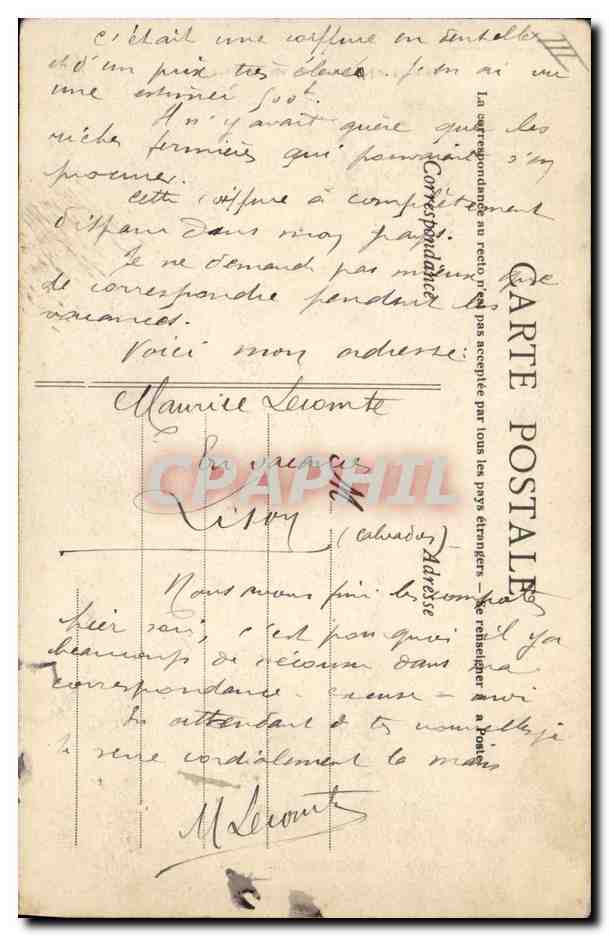 C'était une coiffure en dentelles
et d'un prix très élevé. J'en ai vu
une estimée 500f.
Il n'y avait guère que les
riches fermières qui pouvaient s'en
procurer.
Cette coiffure à complètement
disparu dans mon pays.
Je ne demande pas mieux que
de correspondre pendant les
vacances.
Voici mon adresse:
Maurice Lecomte
En vacances
Lison
(Calvados)
Nous avons fini les
hier soir, c'est pourquoi il y a
beaucoups de dans ma
correspondance - excuse-moi
En attendant de tes nouvelles je
te serre cordialement la main
M Lecomte
III
CARTE POSTALE
La correspondance au recto n'est pas acceptée par tous les pays étrangers - Se renseigner à la Poste
Correspondance
Adresse
M
CPAPHIL